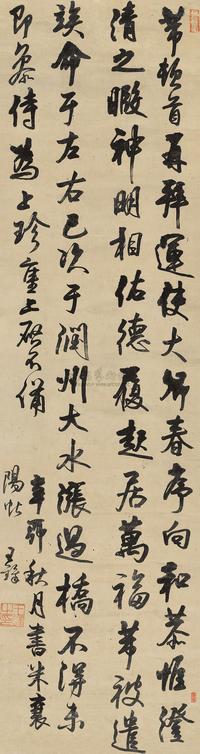 芾頓首再拜運使大卿春序向和恭惟澄
清之暇神明相佑德履起居萬福芾被遣
竢命于左右已次于潤州大水漲過橋不得未
即參侍為上珍重上啓不備
辛卯秋月書米襄
陽帖 王鐸